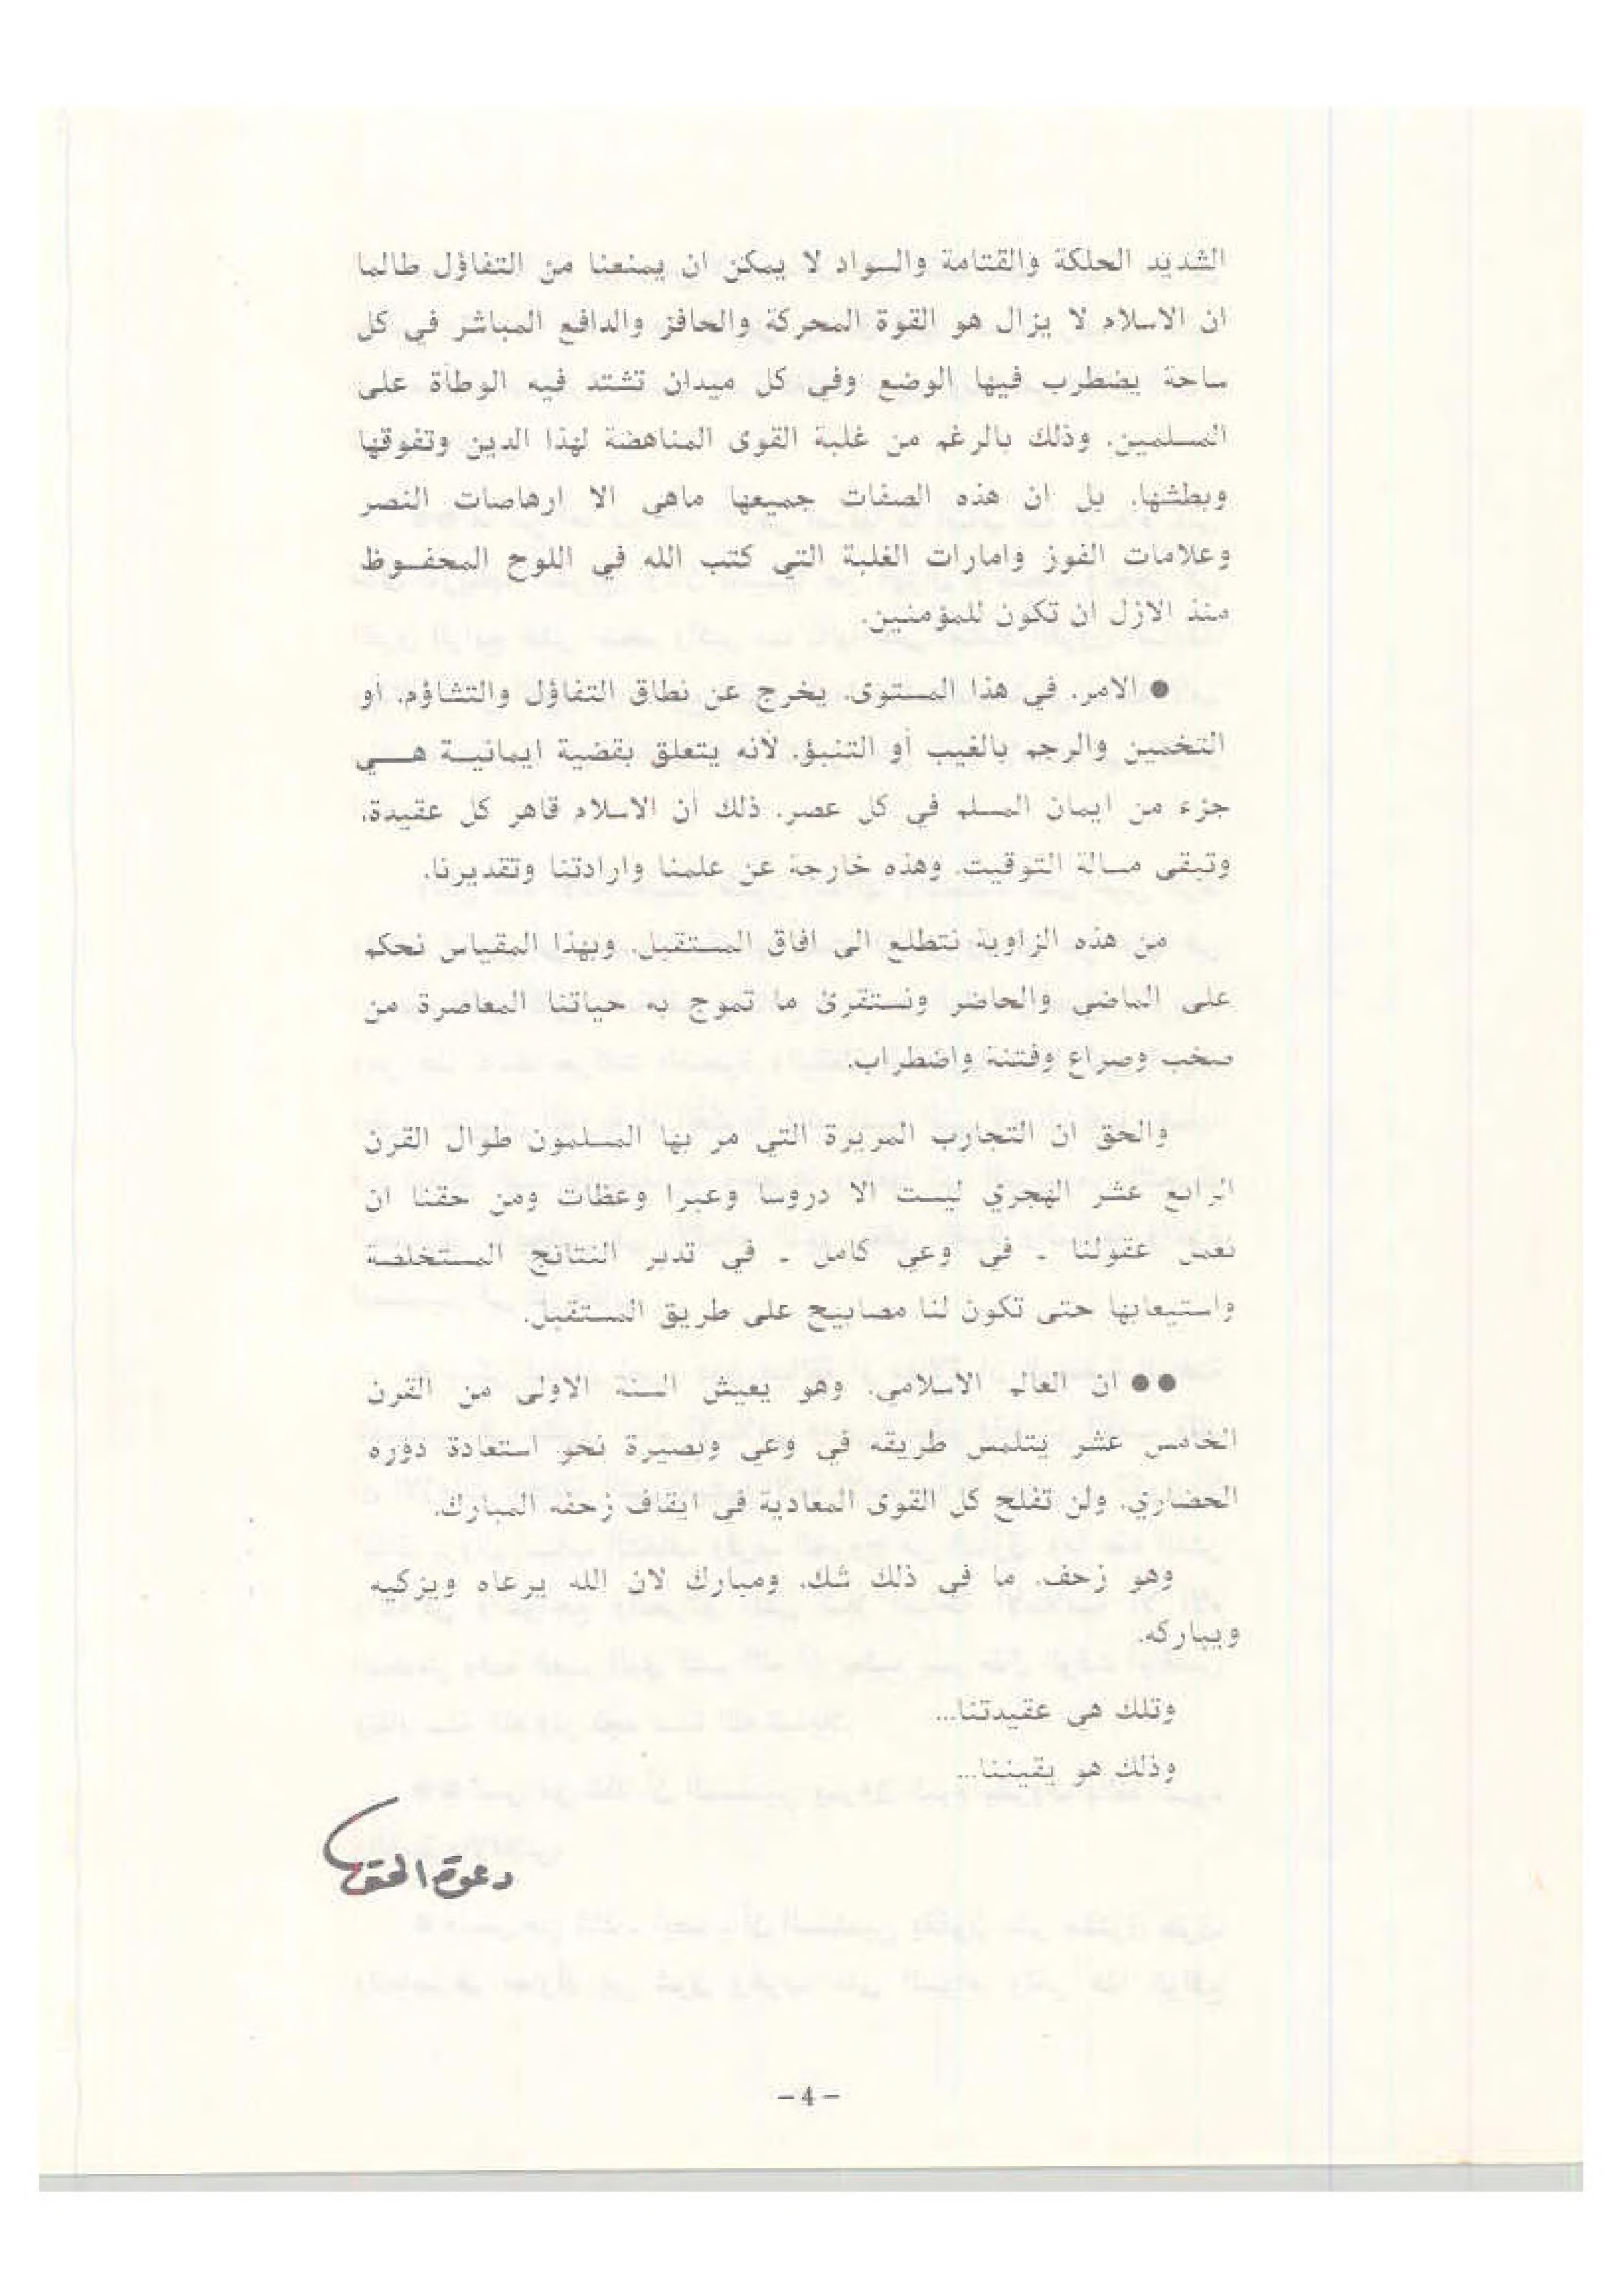 الشديد الحلكة والقتامة والسواد لا يمكن ان يمنعنا من التفاؤل طالما
ان الاسلام لا يزال هو القوة المحركة والحافز والدافع المباشر في كل
ساحة يضطرب فيها الوضع وفي كل ميدان تشتد فيه الوطأة على
المسلمين. وذلك بالرغم من غلبة القوى المناهضة لهذا الدين وتفوقها
وبطشها. بل ان هذه الصفات جميعها ماهي الا ارهاصات النصر
وعلامات الفوز وامارات الغلبة التي كتب الله في اللوح المحفوظ
منذ الازل ان تكون للمؤمنين.
● الامر، في هذا المستوى، يخرج عن نطاق التفاؤل والتشاؤم، أو
التخمين والرجم بالغيب أو التنبؤ. لأنه يتعلق بقضية ايمانية هي
جزء من ايمان المسلم في كل عصر. ذلك أن الاسلام قاهر كل عقيدة،
وتبقى مسالة التوقيت. وهذه خارجة عن علمنا وارادتنا وتقديرنا.
من هذه الزاوية نتطلع الى افاق المستقبل. وبهذا المقياس نحكم
على الماضي والحاضر ونستقرئ ما تموج به حياتنا المعاصرة من
صخب وصراع وفتنة واضطراب.
والحق ان التجارب المريرة التي مر بها المسلمون طوال القرن
الرابع عشر الهجري ليست الا دروسا وعبرا وعظات ومن حقنا ان
نعمل عقولنا - في وعي كامل - في تدبر النتائج المستخلصة
واستيعابها حتى تكون لنا مصابيح على طريق المستقبل.
●● ان العالم الاسلامي، وهو يعيش السنة الاولى من القرن
الخامس عشر يتلمس طريقه في وعي وبصيرة نحو استعادة دوره
الحضاري. ولن تفلح كل القوى المعادية في ايقاف زحفه المبارك.
وهو زحف، ما في ذلك شك، ومبارك لان الله يرعاه ويزكيه
ويباركه.
وتلك هي عقيدتنا...
وذلك هو يقيننا...
دعوة الحق
- 4 -